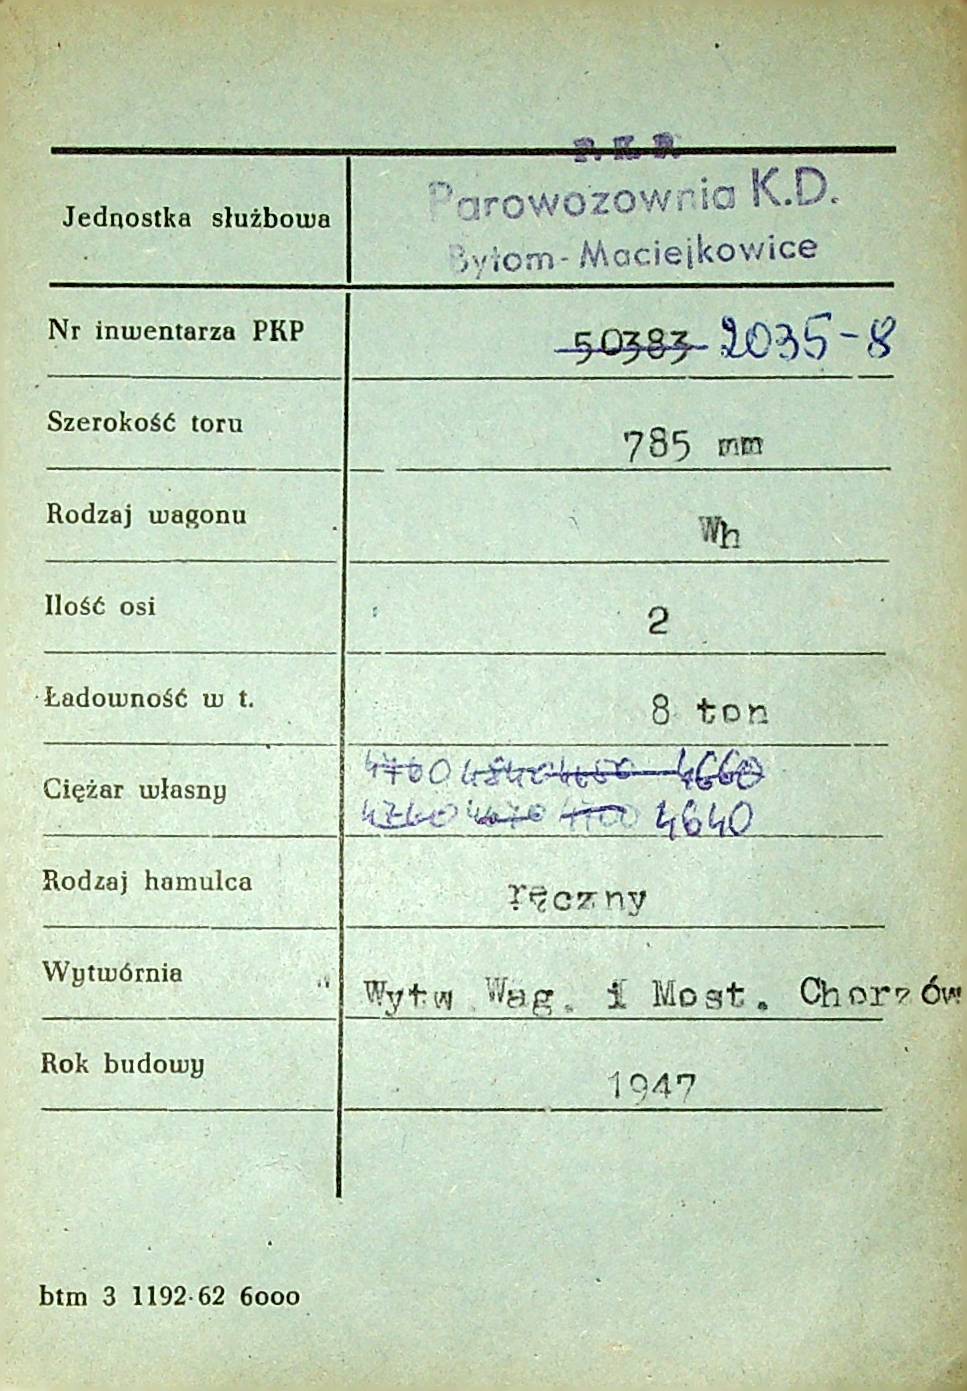 P. K. P.
Jednostka służbowa Parowozownia K.D.
Bytom-Maciejkowice
Nr inwentarza PKP 50383 2035-8
Szerokość toru 785 mm
Rodzaj wagonu Wh
Ilość osi 2
Ładowność w t. 8 ton
Ciężar własny 4760 4840 4660
4740 4670 4700 4640
Rodzaj hamulca ręczny
Wytwórnia Wytw. Wag. i Most. Chorzów
Rok budowy 1947
btm 3 1192-62 6000